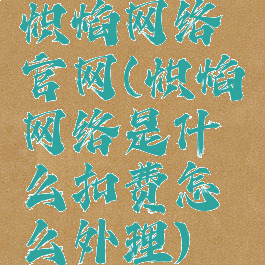 炽焰网络
官网(炽焰
网络是什
么扣费怎
么外理)